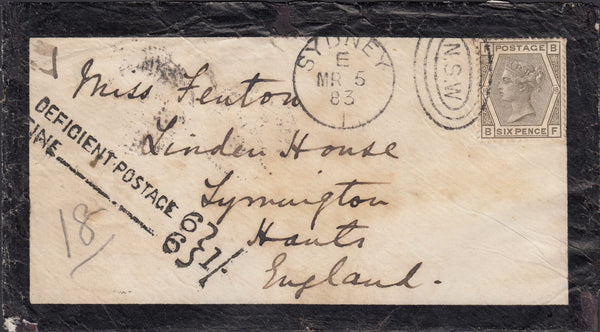 SYDNEY
E
MR 5
83
1
N.S.W
F POSTAGE B
B SIX PENCE F
Miss Fenton
Linden House
Lymington
Hants
England.
DEFICIENT POSTAGE 6
FINE 6 } 1/
18